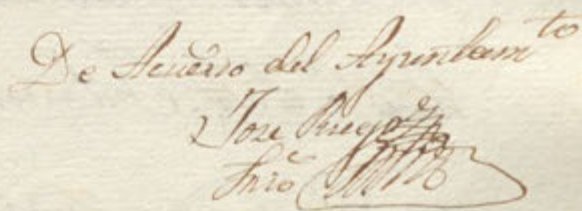 De Acuerdo del Ayuntam^to
Jose
Srio